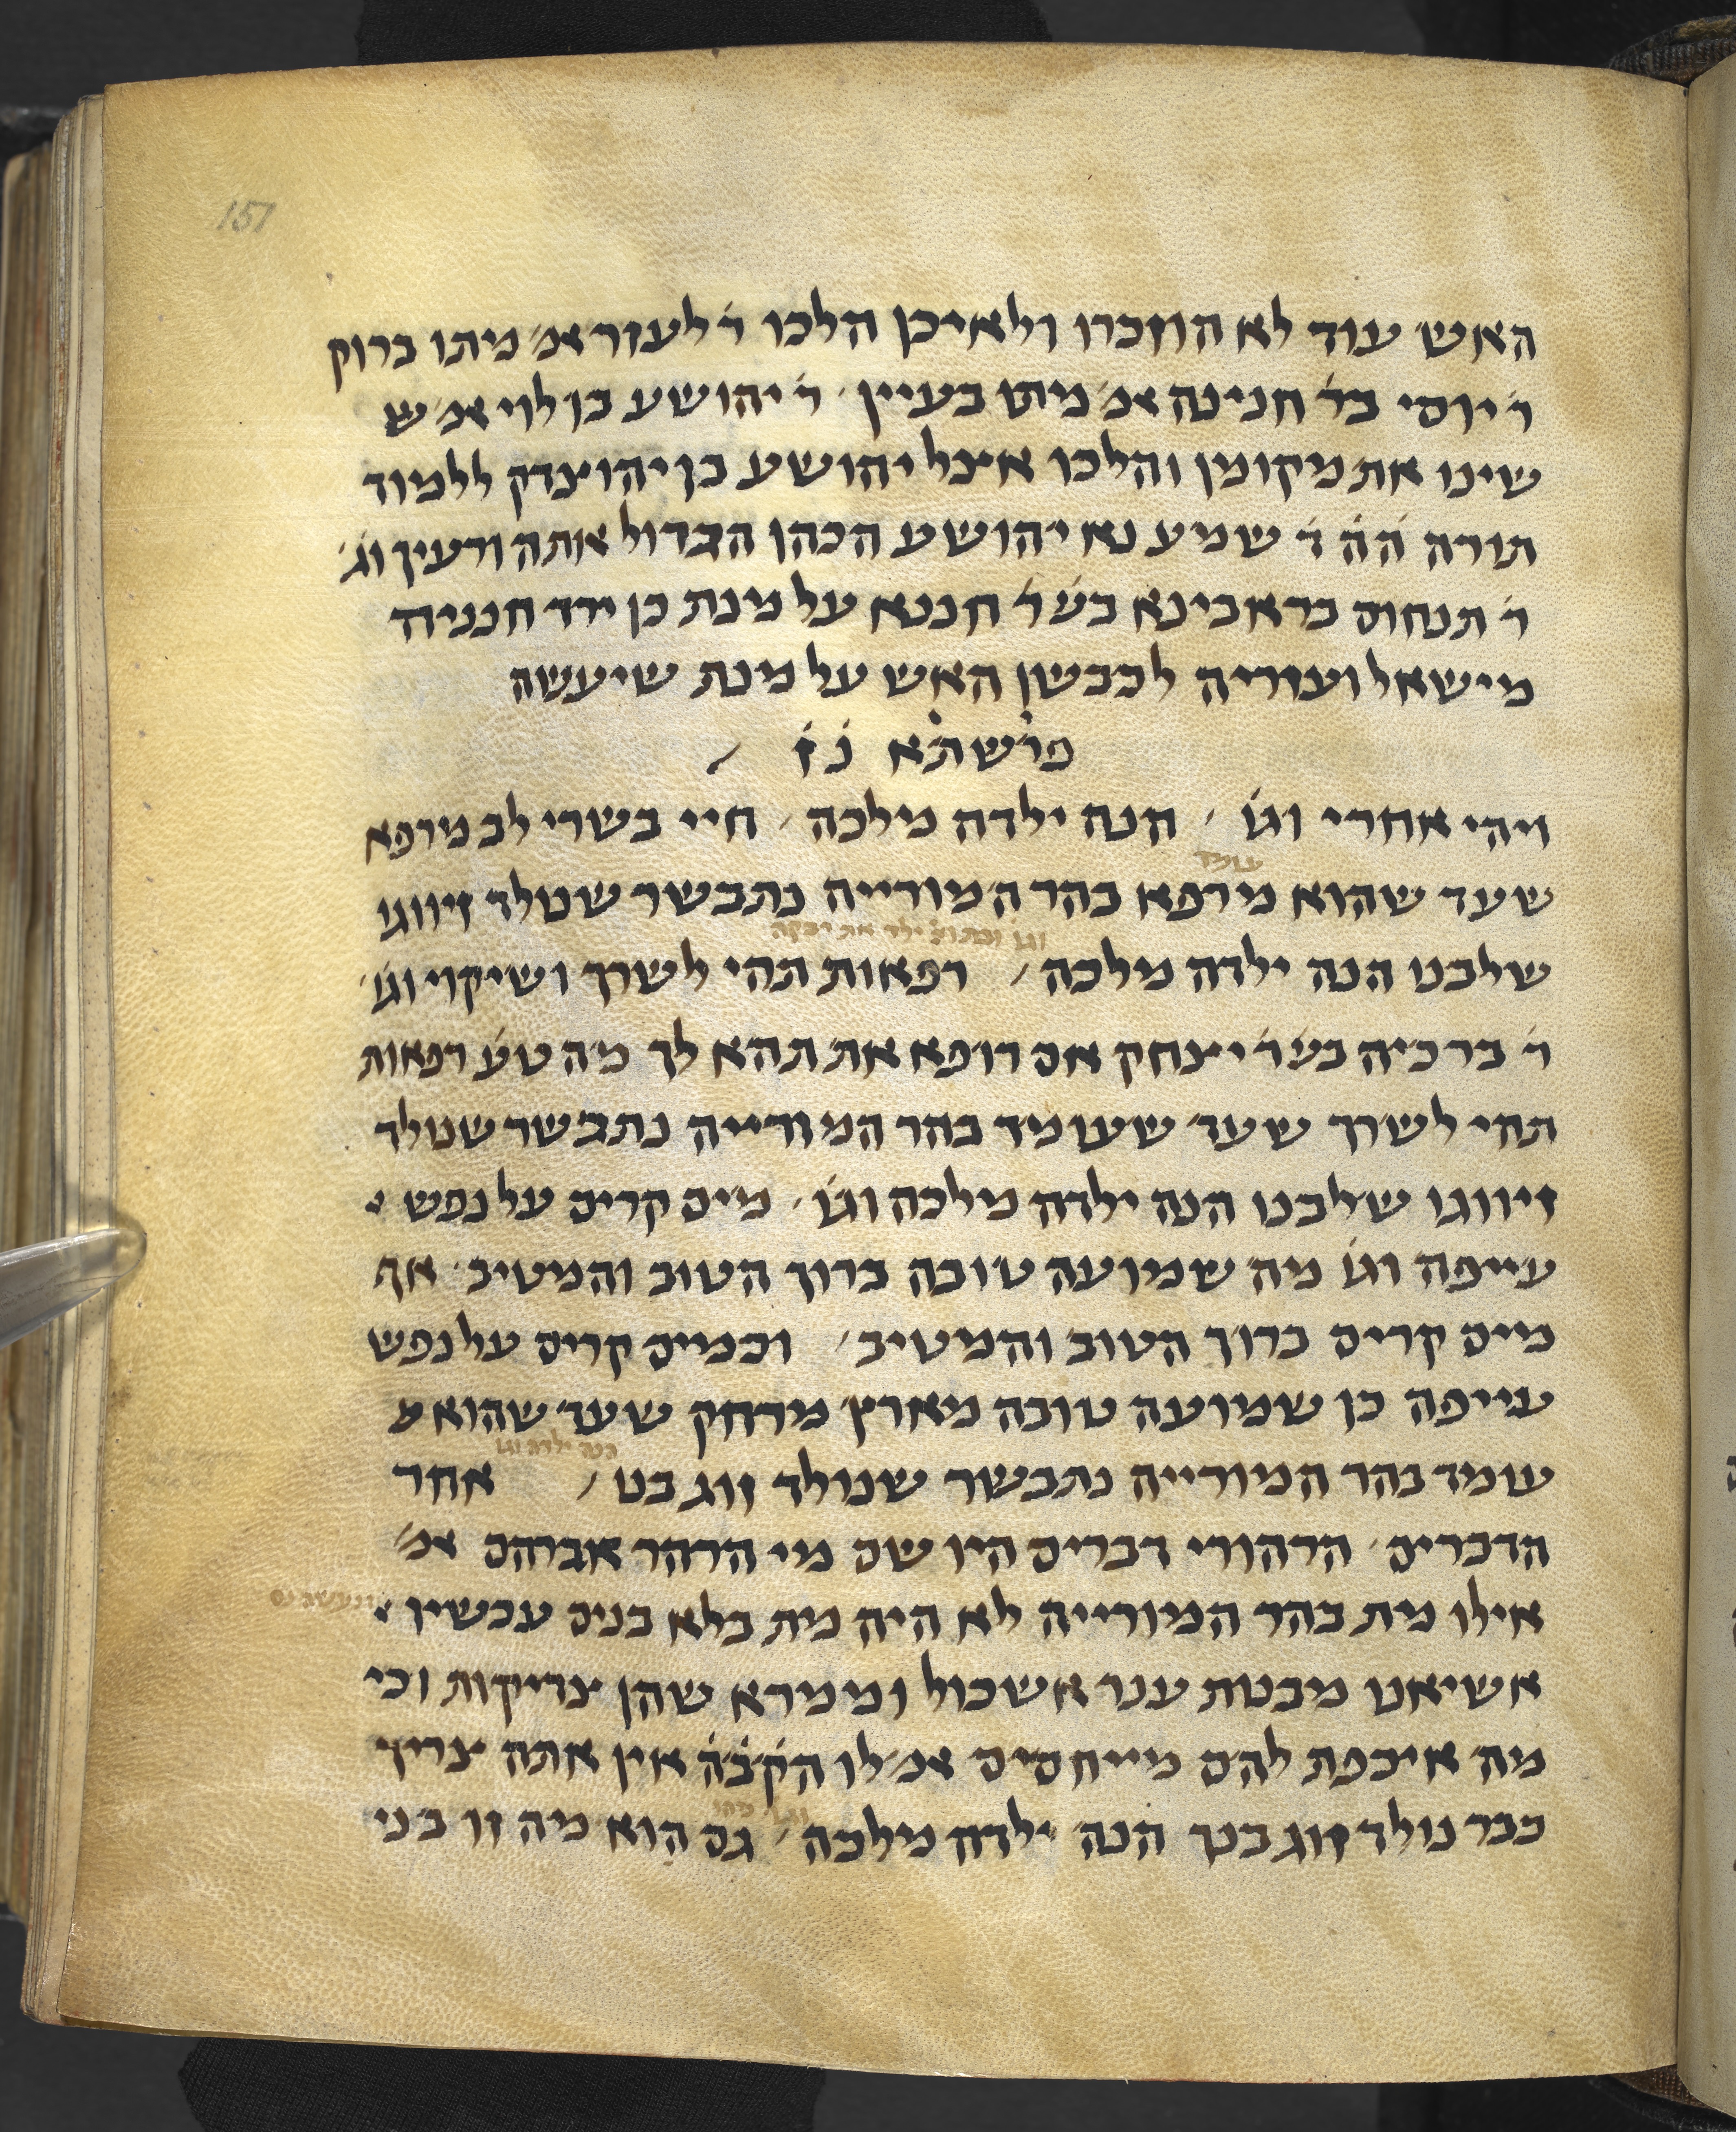 157
האש עוד לא הוזכרו ולאיכן הלכו ר׳ לעזר אמ׳ מיתו ברוק
ר׳ יוסי בר׳ חנינה אמ׳ מיתו בעיין׳ ר׳ יהושע בן לוי אמ׳ ש
שינו את מקומן והלכו אצל יהושע בן יהוצדק ללמוד
תורה הה׳ ד׳ שמע נא יהושע הכהן הגדול אתה ורעיך וג׳
ר׳ תנחום בר אבינא בש׳ ר׳ חננא על מנת כן ירד חנניה
מישאל ועזריה לכבשן האש על מנת שיעשה
פרשתא נז
ויהי אחרי וגו׳ הנה ילדה מלכה׳ חיי בשרי לב מרפא
עומד
שעד שהוא מרפא בהר המורייה נתבשר שנולד זיווגו
וגו וכתו׳ ילד את רבקה
שלבנו הנה ילדה מלכה׳ רפאות תהי לשרך ושיקוי וגו׳
ר׳ ברכיה בש׳ ר׳ יצחק אם רופא את תהא לך מה טע׳ רפאות
תהי לשרך שעד שעומד בהר המורייה נתבשר שנולד
זיווגו שלבנו הנה ילדה מלכה וגו׳ מים קרים על נפש
עייפה וגו׳ מה שמועה טובה ברוך הטוב והמטיב׳ אף
מים קרים ברוך הטוב והמטיב׳ וכמים קרים על נפש
עייפה כן שמועה טובה מארץ מרחק שעד שהוא ע
הנה ילדה וגו
עומד בהר המורייה נתבשר שנולד זוג בנו׳ אחר
הדברים׳ הרהורי דברים היו שם מי הרהר אברהם אמ׳
אילו מת בהר המורייה לא היה מת בלא בנים עכשיו
אשיאנו מבנות ענר אשכול וממרא שהן צדיקות וכי
מה איכפת להם מייחסים אמ׳ לו הק׳ב׳ה׳ אין אתה צריך
כבר נולד זוג בנך הנה ילדה מלכה׳ גם הוא מה זו בני